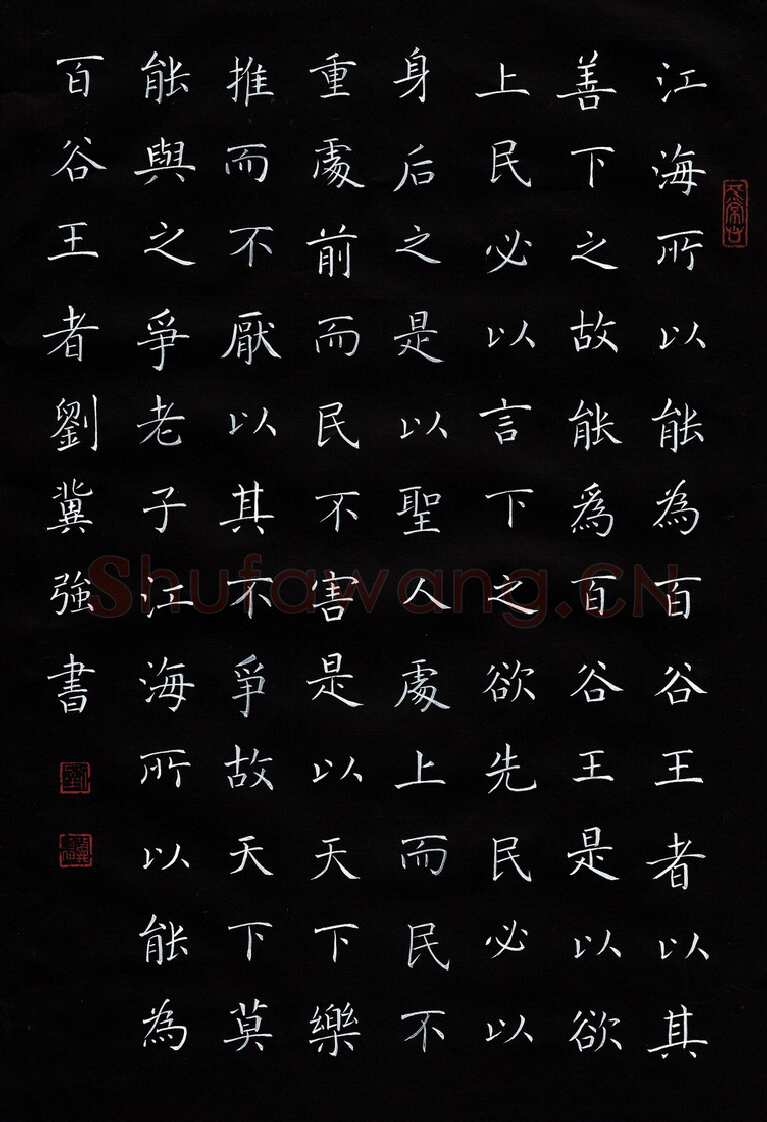 江海所以能為百谷王者以其
善下之故能爲百谷王是以欲
上民必以言下之欲先民必以
身后之是以聖人處上而民不
重處前而民不害是以天下樂
推而不厭以其不爭故天下莫
能與之爭老子江海所以能為
百谷王者劉冀強書
Shufawang.CN